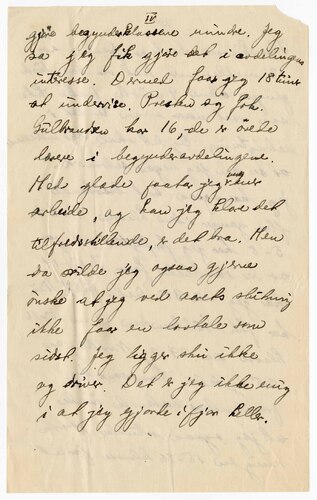 IV
gjøre begynderklassene mindre. Jeg
sa jeg fik gjøre det i avdelingens
interesse. Dermed faar jeg 18 timer
at undervise. Presten og frk.
Gulbransen har 16, de er øvede
lærere i begynderavdelingene.
Med glæde paatar jeg mig
arbeide, og kan jeg klare det
tilfredsstillende, er det bra. Men
da vilde jeg ogsaa gjerne
ønske at jeg ved aarets slutning
ikke faar en lostale som
sidst. Jeg ligger slu ikke
og driver. Det er jeg ikke enig
i at jeg gjorde i fjor heller.